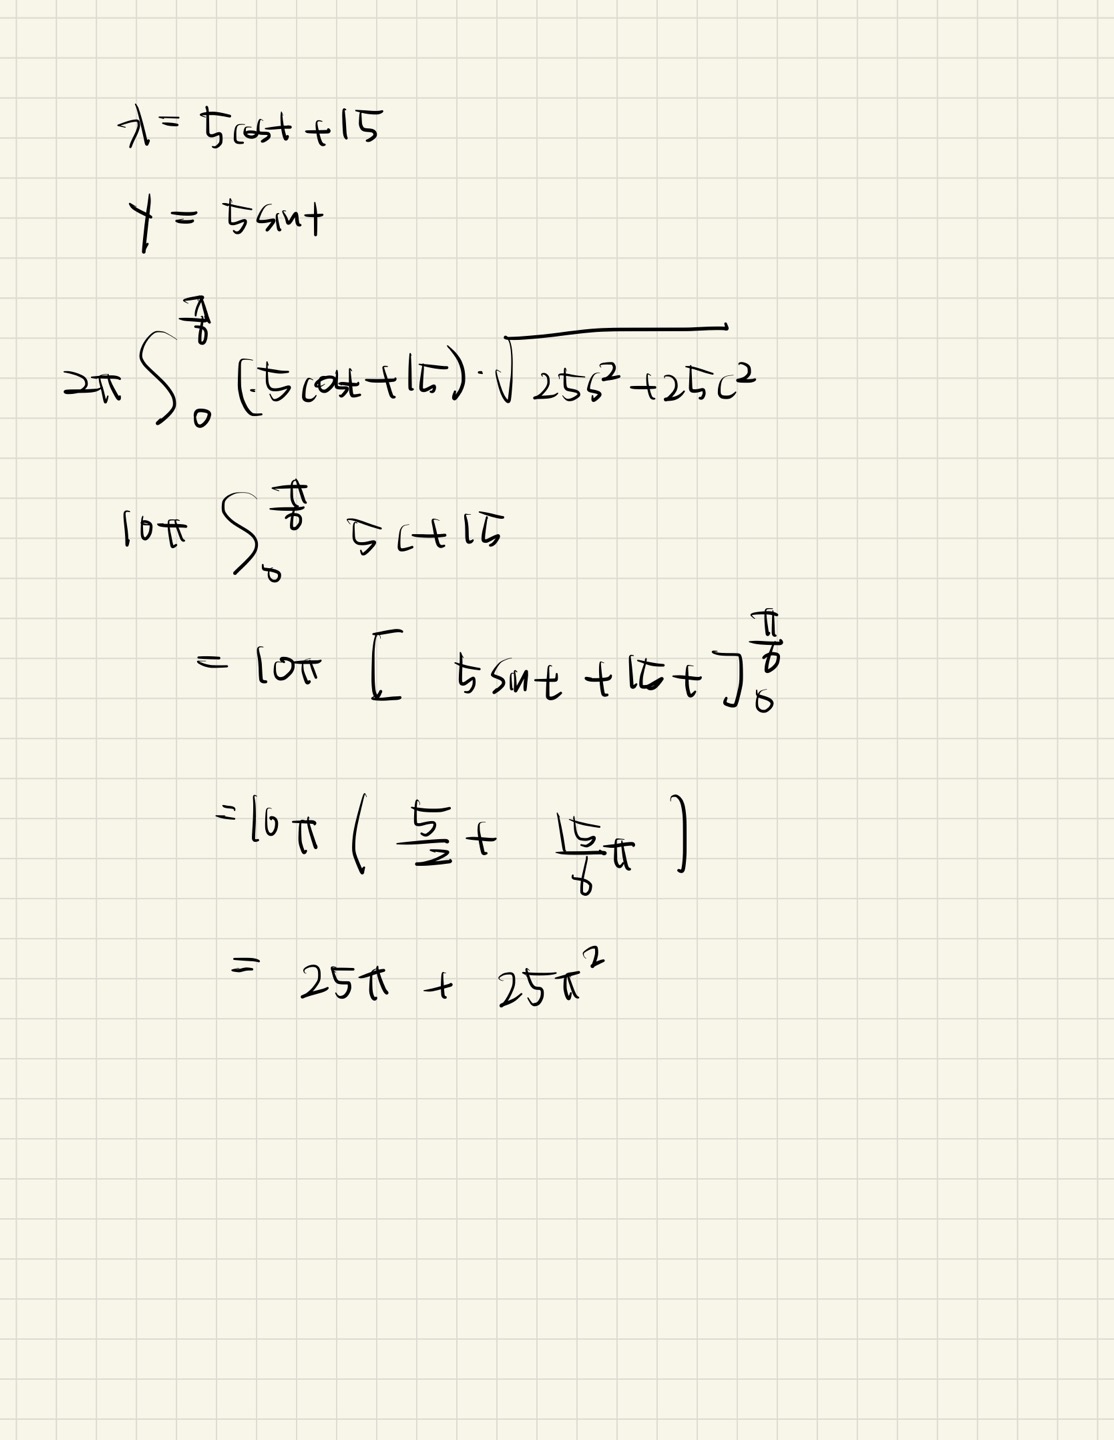 x = 5cost + 15
y = 5sint
2π ∫₀^(π/6) (5cost + 15) · √(25s² + 25c²)
10π ∫₀^(π/6) 5c + 15
= 10π [ 5sint + 15t ]₀^(π/6)
= 10π ( 5/2 + 15/6 π )
= 25π + 25π²